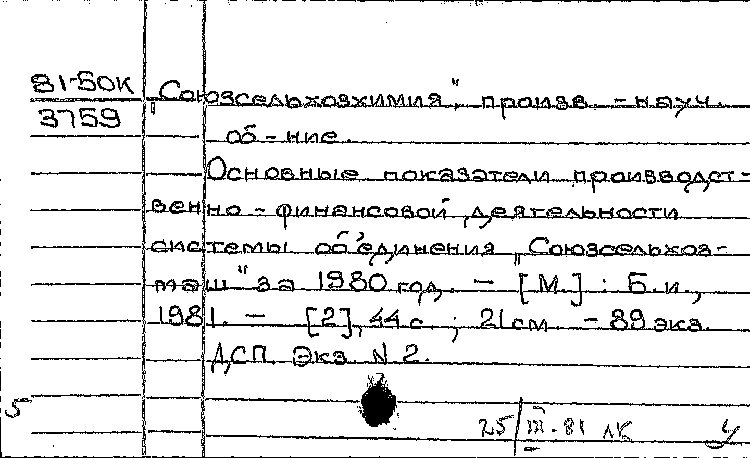 81-50К
3759
„Союзсельхозхимия", произв.-науч.
об-ние.
Основные показатели производст-
венно-финансовой деятельности
системы объединения „Союзсельхоз-
маш" за 1980 год. - [М.] : Б.и.,
1981. - [2], 44 с. ; 21 см. - 89 экз.
ДСП. Экз. N 2.
5
25/III-81 ЛК